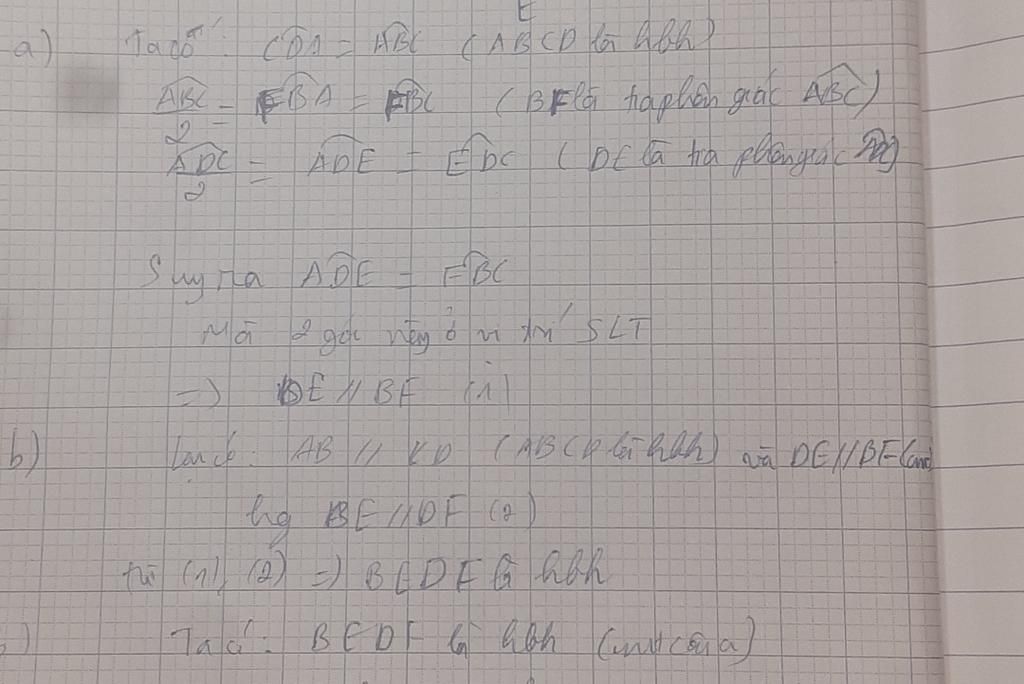 E
a) Ta có: CDA = ABC (ABCD là hbh)
ABC/2 = FBA = FBC (BF là tia phân giác ABC)
ADC/2 = ADE = EDC (DE là tia phân giác
Suy ra ADE = FBC
Mà 2 góc này ở vị trí SLT
=> DE // BF (1)
b) Ta có: AB // CD (ABCD là hbh) và DE // BF (cmt)
hay BE // DF (2)
từ (1), (2) => BEDF là hbh
) Ta có: BEDF là hbh (cmt câu a)